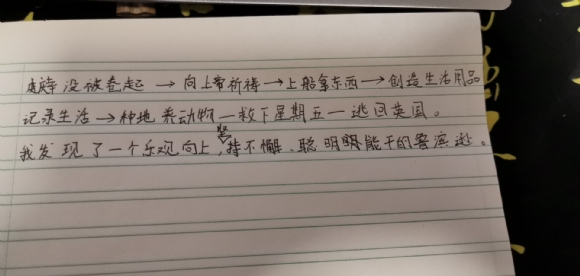 庆幸没被卷起→向上帝祈祷→上船拿东西→创造生活用品
记录生活→种地 养动物—救下星期五—逃回英国。
我发现了一个乐观向上,坚持不懈、聪明能干的鲁滨逊。